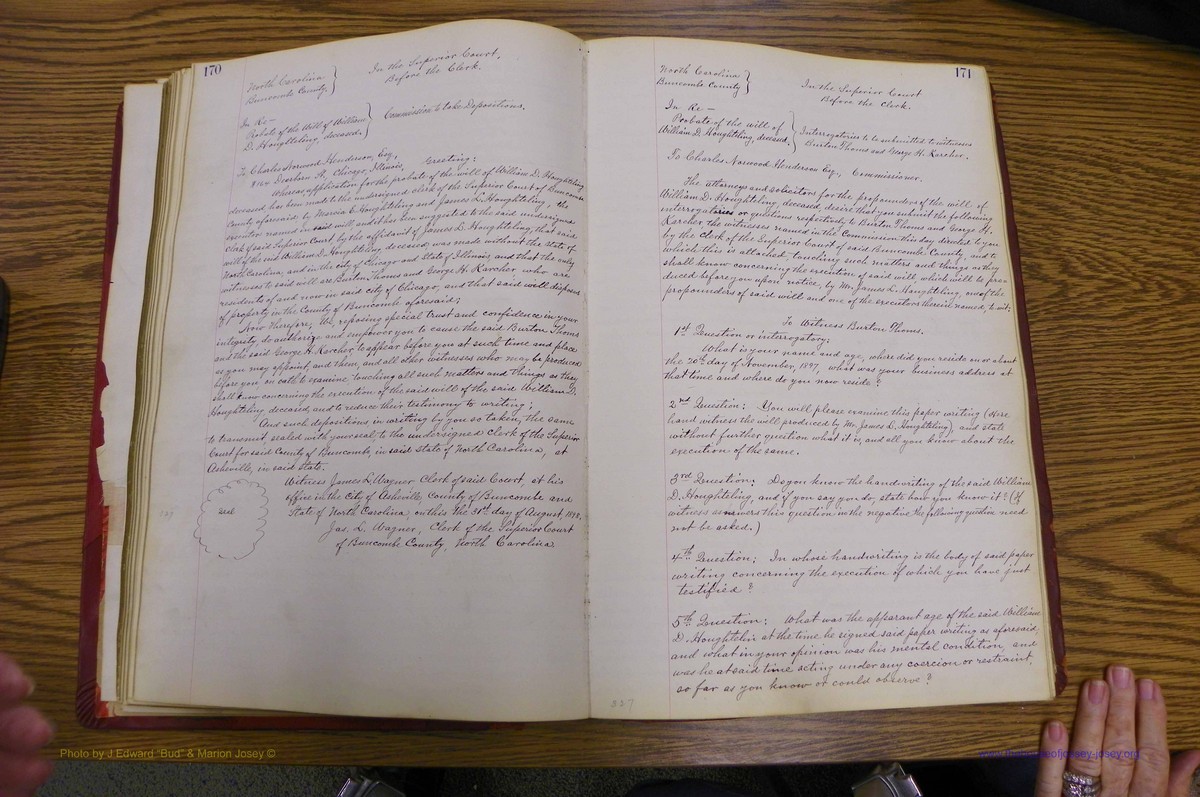 170
North Carolina
Buncombe County.
In the Superior Court.
Before the Clerk.
In Re—
Probate of the Will of William
D. Houghteling, deceased.
Commission to take Depositions.
To Charles Norwood Henderson, Esq.,
Dearborn St, Chicago, Illinois, Greeting:
Whereas application for the probate of the will of William D. Houghteling
deceased, has been made to the undersigned clerk of the Superior Court of Buncombe
County aforesaid by Marcia E. Houghteling and James L. Houghteling, the
executors named in said will, and it has been suggested to the said undersigned
clerk of said Superior Court by the affidavit of James L. Houghteling, that said
will of the said William D. Houghteling deceased, was made without the state of
North Carolina, and in the city of Chicago and State of Illinois, and that the only
witnesses to said will are Burton Thoms and George H. Karcher who are
residents of and now in said city of Chicago, and that said will disposes
of property in the County of Buncombe aforesaid;
Now therefore, We, reposing special trust and confidence in your
integrity, do authorize and empower you to cause the said Burton Thoms
and the said George H. Karcher to appear before you at such time and place
as you may appoint, and them, and all other witnesses who may be produced
before you on oath to examine touching all such matters and things as they
shall know concerning the execution of the said will of the said William D.
Houghteling deceased, and to reduce their testimony to writing;
And such depositions in writing by you so taken, the same
to transmit, sealed with your seal, to the undersigned Clerk of the Superior
Court for said County of Buncombe, in said State of North Carolina, at
Asheville, in said State.
Witness James L. Wagner Clerk of said Court, at his
office in the City of Asheville, County of Buncombe and
State of North Carolina on this the 31st day of August, 1898.
Jas. L. Wagner, Clerk of the Superior Court
of Buncombe County, North Carolina.
seal
171
North Carolina
Buncombe County
In the Superior Court
Before the Clerk.
In Re—
Probate of the will of
William D. Houghteling, deceased.
Interrogatories to be submitted to witnesses
Burton Thoms and George H. Karcher.
To Charles Norwood Henderson Esq., Commissioner.
The attorneys and solicitors for the propounders of the will of
William D. Houghteling, deceased, desire that you submit the following
interrogatories or questions respectively to Burton Thoms and George H.
Karcher the witnesses named in the Commission this day directed to you
by the clerk of the Superior Court of said Buncombe County, and to
which this is attached, touching such matters and things as they
shall know concerning the execution of said will which will be pro-
duced before you upon notice, by Mr. James L. Houghteling, one of the
propounders of said will and one of the executors therein named, to wit;
To Witness Burton Thoms.
1st Question or interrogatory:
What is your name and age, where did you reside on or about
the 20th day of November, 1897, what was your business address at
that time and where do you now reside?
2nd Question: You will please examine this paper writing (Here
hand witness the will produced by Mr. James L. Houghteling), and state
without further question what it is, and all you know about the
execution of the same.
3rd Question: Do you know the handwriting of the said William
D. Houghteling, and if you say you do, state how you know it? (If
witness answers this question in the negative, the following question need
not be asked.)
4th Question: In whose handwriting is the body of said paper
writing concerning the execution of which you have just
testified?
5th Question: What was the apparant age of the said William
D. Houghtelin at the time he signed said paper writing as aforesaid,
and what in your opinion was his mental condition, and
was he at said time acting under any coercion or restraint,
so far as you know or could observe?
327
Photo by J Edward "Bud" & Marion Josey ©